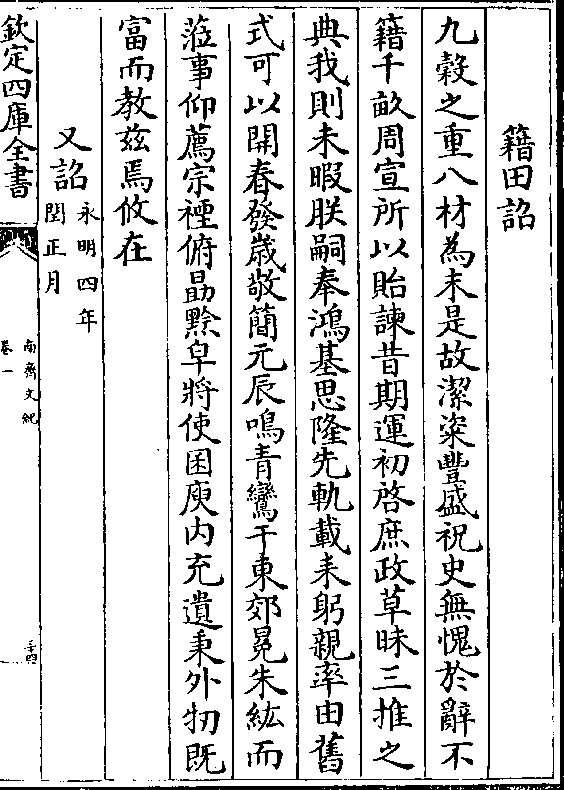 籍田詔
九穀之重八材為末是故潔粢豐盛祝史無愧於辭不
籍千畝周宣所以貽諫昔期運初啓庶政草昧三推之
典我則未暇朕嗣奉鴻基思隆先軌載耒躬親率由舊
式可以開春發歲敬簡元辰鳴青鸞于東郊冕朱紘而
蒞事仰薦宗禋俯勗黔皁將使囷庾内充遺秉外牣既
富而教茲焉攸在
又詔
永明四年
閏正月
欽定四庫全書
南齊文紀
卷一
三十四